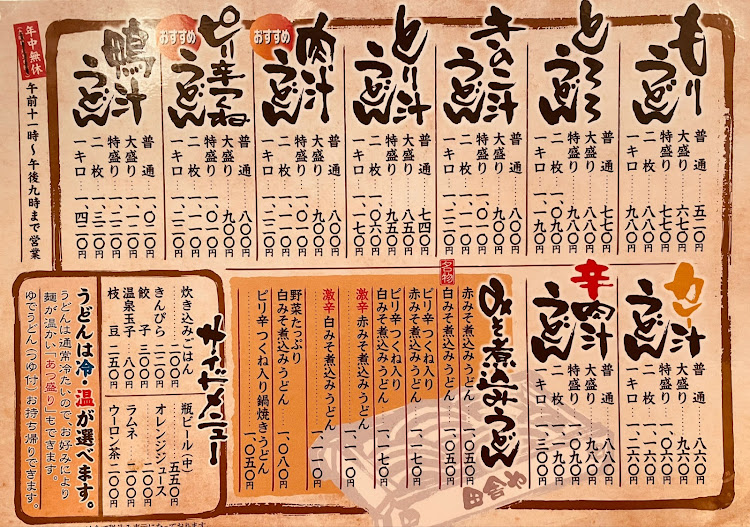 もりうどん
普通 五二〇円
大盛り 六七〇円
特盛り 七七〇円
二枚 八八〇円
一キロ 九八〇円
とろろうどん
普通 七七〇円
大盛り 八八〇円
特盛り 九八〇円
二枚 一、〇九〇円
一キロ 一、一九〇円
きのこ汁うどん
普通 八〇〇円
大盛り 九〇〇円
特盛り 一、〇一〇円
二枚 一、一一〇円
一キロ 一、二二〇円
とり汁うどん
普通 七四〇円
大盛り 八五〇円
特盛り 九五〇円
二枚 一、〇六〇円
一キロ 一、一七〇円
おすすめ
肉汁うどん
普通 八〇〇円
大盛り 九〇〇円
特盛り 一、〇一〇円
二枚 一、一一〇円
一キロ 一、二二〇円
おすすめ
ピリ辛つくねうどん
普通 八〇〇円
大盛り 九〇〇円
特盛り 一、〇一〇円
二枚 一、一一〇円
一キロ 一、二二〇円
鴨汁うどん
普通 一、〇二〇円
大盛り 一、一二〇円
特盛り 一、二二〇円
二枚 一、三一〇円
一キロ 一、四一〇円
年中無休
午前十一時〜午後九時まで営業
カレー汁うどん
普通 八六〇円
大盛り 九六〇円
特盛り 一、〇六〇円
二枚 一、一六〇円
一キロ 一、二六〇円
辛肉汁うどん
普通 八八〇円
大盛り 九八〇円
特盛り 一、〇九〇円
二枚 一、一九〇円
一キロ 一、三〇〇円
みそ煮込みうどん
赤みそ煮込みうどん 一、〇五〇円
名物
白みそ煮込みうどん 一、〇五〇円
ピリ辛つくね入り
赤みそ煮込みうどん 一、一七〇円
ピリ辛つくね入り
白みそ煮込みうどん 一、一七〇円
激辛 赤みそ煮込みうどん 一、一〇〇円
激辛 白みそ煮込みうどん 一、一〇〇円
野菜たっぷり
白みそ煮込みうどん 一、〇八〇円
ピリ辛つくね入り鍋焼きうどん 一、〇五〇円
田舎や
サイドメニュー
炊き込みごはん 二〇〇円
きんぴら 二二〇円
餃子 三〇〇円
温泉玉子 八〇円
枝豆 二五〇円
瓶ビール(中) 五五〇円
オレンジジュース 二〇〇円
ラムネ 二〇〇円
ウーロン茶 二〇〇円
うどんは冷・温が選べます。
うどんは通常冷たいので、お好みにより
麺が温かい「あつ盛り」もできます。
ゆでうどん(つゆ付)お持ち帰りできます。